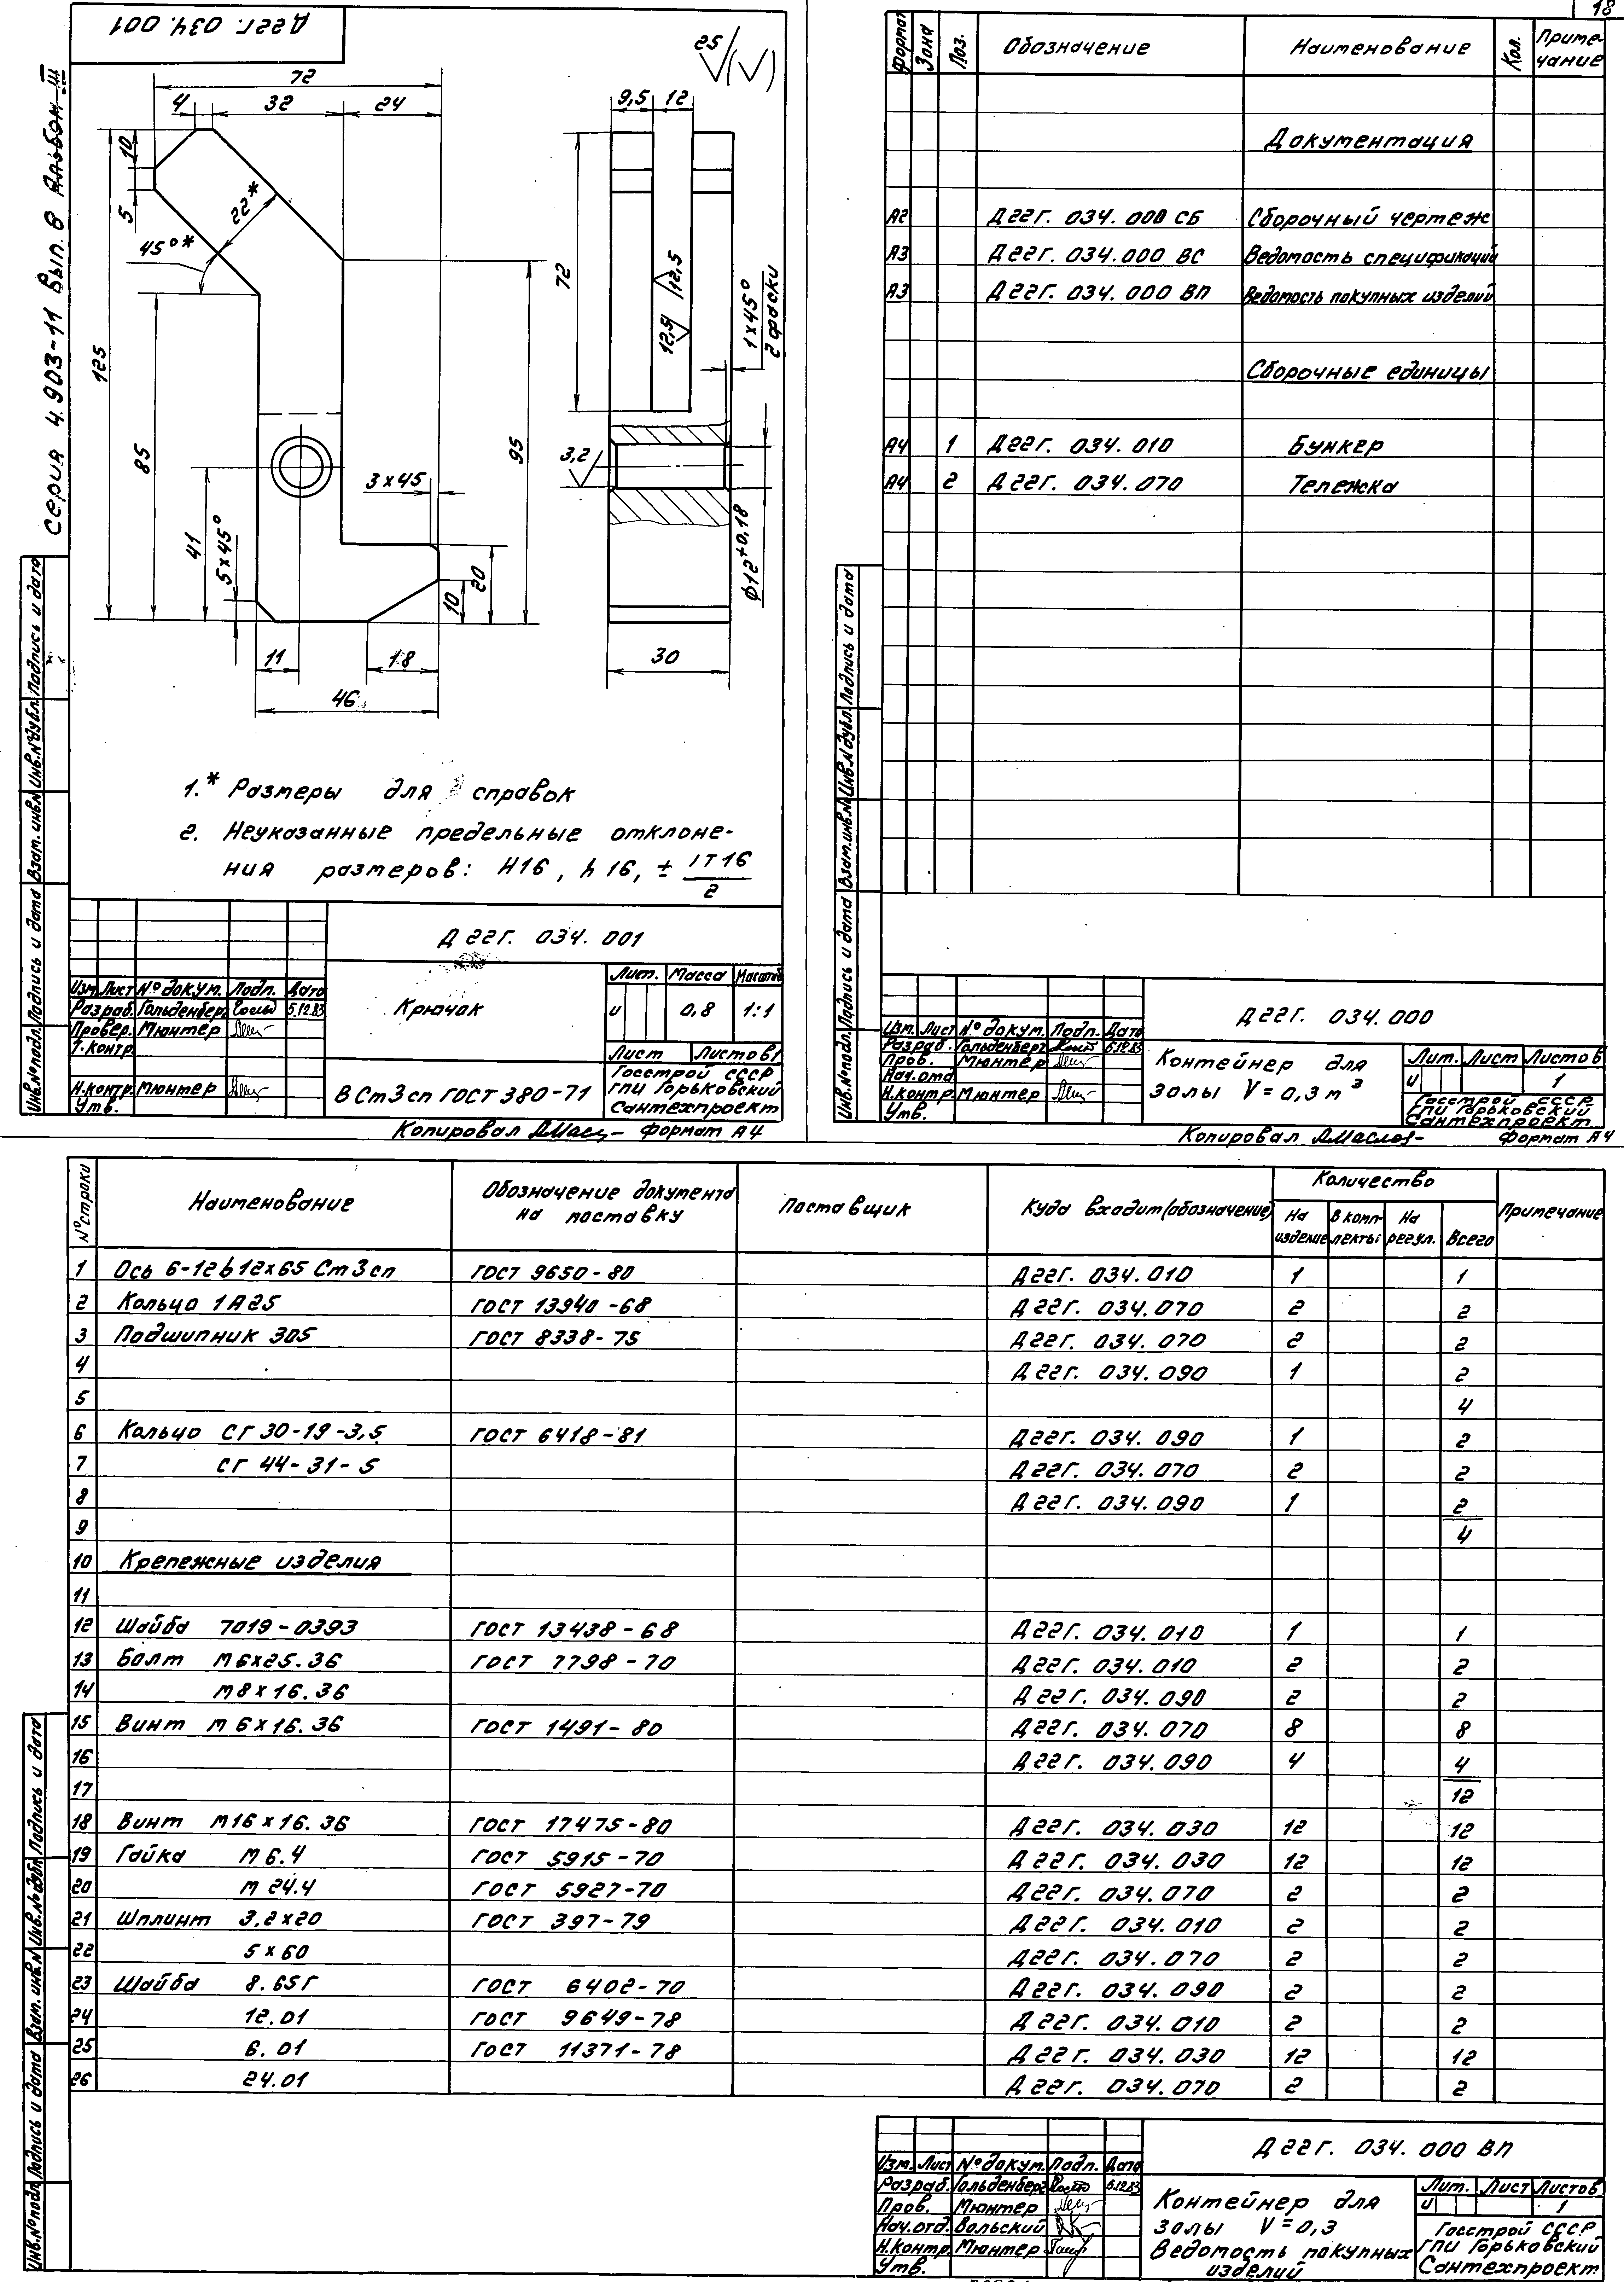 Д22Г. 034. 001
Серия 4.903-11 Вып. 8 Альбом III
25 (√)
72
4 32 24
10
5
22*
45°*
125
85
41
5×45°
3×45
95
20
10
11 18
46
9,5 12
72
12,5
12,5
1×45°
2 фаски
3,2
ф12+0,18
30
1.* Размеры для справок
2. Неуказанные предельные отклоне-
ния размеров: H16, h16, ± IT16/2
Д22Г. 034. 001
Изм. Лист № докум. Подп. Дата
Разраб. Гольденберг 5.12.83
Провер. Мюнтер
Т.контр.
Н.контр. Мюнтер
Утв.
Крючок
Лит. Масса Масштаб
и 0,8 1:1
Лист Листов 1
ВСт3сп ГОСТ 380-71
Госстрой СССР
ГПИ Горьковский
Сантехпроект
Копировал Формат А4
Инв.№подл. Подпись и дата Взам. инв.№ Инв.№дубл. Подпись и дата
18
Формат Зона Поз. Обозначение Наименование Кол. Приме-
чание
Документация
А2 Д22Г. 034. 000 СБ Сборочный чертеж
А3 Д22Г. 034. 000 ВС Ведомость спецификаций
А3 Д22Г. 034. 000 ВП Ведомость покупных изделий
Сборочные единицы
А4 1 Д22Г. 034. 010 Бункер
А4 2 Д22Г. 034. 070 Тележка
Инв.№подл. Подпись и дата Взам.инв.№ Инв.№дубл. Подпись и дата
Д22Г. 034. 000
Изм. Лист № докум. Подп. Дата
Разраб. Гольденберг 5.12.83
Пров. Мюнтер
Нач.отд.
Н.контр. Мюнтер
Утв.
Контейнер для
золы V = 0,3 м³
Лит. Лист Листов
и 1
Госстрой СССР
ГПИ Горьковский
Сантехпроект
Копировал Формат А4
№ строки Наименование Обозначение документа
на поставку Поставщик Куда входит (обозначение) Количество Примечание
На
изделие В комп-
лекты На
регул. Всего
1 Ось 6-12b12×65 Ст3сп ГОСТ 9650-80 Д22Г. 034. 010 1 1
2 Кольцо 1А25 ГОСТ 13940-68 Д22Г. 034. 070 2 2
3 Подшипник 305 ГОСТ 8338-75 Д22Г. 034. 070 2 2
4 Д22Г. 034. 090 1 2
5 4
6 Кольцо СГ 30-19-3,5 ГОСТ 6418-81 Д22Г. 034. 090 1 2
7 СГ 44-31-5 Д22Г. 034. 070 2 2
8 Д22Г. 034. 090 1 2
9 4
10 Крепежные изделия
11
12 Шайба 7019-0393 ГОСТ 13438-68 Д22Г. 034. 010 1 1
13 Болт М6×25.36 ГОСТ 7798-70 Д22Г. 034. 010 2 2
14 М8×16.36 Д22Г. 034. 090 2 2
15 Винт М6×16.36 ГОСТ 1491-80 Д22Г. 034. 070 8 8
16 Д22Г. 034. 090 4 4
17 12
18 Винт М16×16.36 ГОСТ 17475-80 Д22Г. 034. 030 12 12
19 Гайка М6.4 ГОСТ 5915-70 Д22Г. 034. 030 12 12
20 М24.4 ГОСТ 5927-70 Д22Г. 034. 070 2 2
21 Шплинт 3,2×20 ГОСТ 397-79 Д22Г. 034. 010 2 2
22 5×60 Д22Г. 034. 070 2 2
23 Шайба 8.65Г ГОСТ 6402-70 Д22Г. 034. 090 2 2
24 12.01 ГОСТ 9649-78 Д22Г. 034. 010 2 2
25 6.01 ГОСТ 11371-78 Д22Г. 034. 030 12 12
26 24.01 Д22Г. 034. 070 2 2
Инв.№подл. Подпись и дата Взам. инв.№ Инв.№дубл. Подпись и дата
Д22Г. 034. 000 ВП
Изм. Лист № докум. Подп. Дата
Разраб. Гольденберг 5.12.83
Пров. Мюнтер
Нач.отд. Вольский
Н.контр. Мюнтер
Утв.
Контейнер для
золы V = 0,3
Ведомость покупных
изделий
Лит. Лист Листов
и 1
Госстрой СССР
ГПИ Горьковский
Сантехпроект